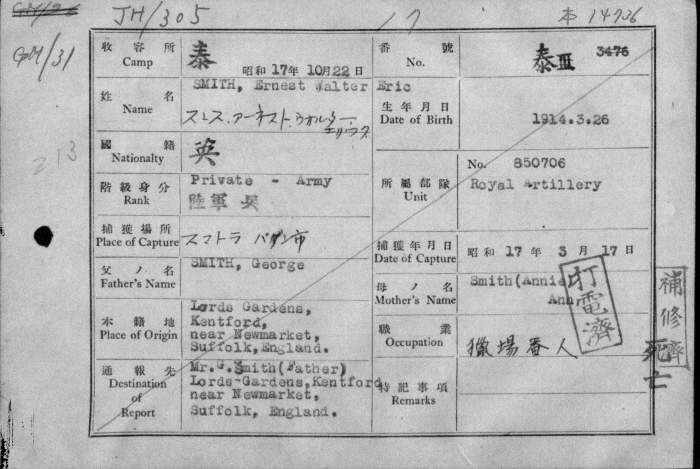 JH/305
17
本 14736
GM/31
213
收容所 Camp
泰
昭和 17年 10月22日
番號 No.
泰III 3476
姓名 Name
SMITH, Ernest Walter Eric
スミス.アーネスト.ウオルター
エリック
生年月日 Date of Birth
1914.3.26
國籍 Nationalty
英
階級身分 Rank
Private - Army
陸軍 兵
所屬部隊 Unit
No. 850706
Royal Artillery
捕獲場所 Place of Capture
スマトラ パダン市
捕獲年月日 Date of Capture
昭和 17 年 3 月 17 日
父ノ名 Father's Name
SMITH, George
母ノ名 Mother's Name
Smith(Annie)
Ann
打電濟
補修濟
死亡
本籍地 Place of Origin
Lords Gardens,
Kentford,
near Newmarket,
Suffolk,England.
職業 Occupation
獵場番人
通報先 Destination of Report
Mr.G.Smith(Father)
Lords-Gardens,Kentford
near Newmarket,
Suffolk, England.
特記事項 Remarks